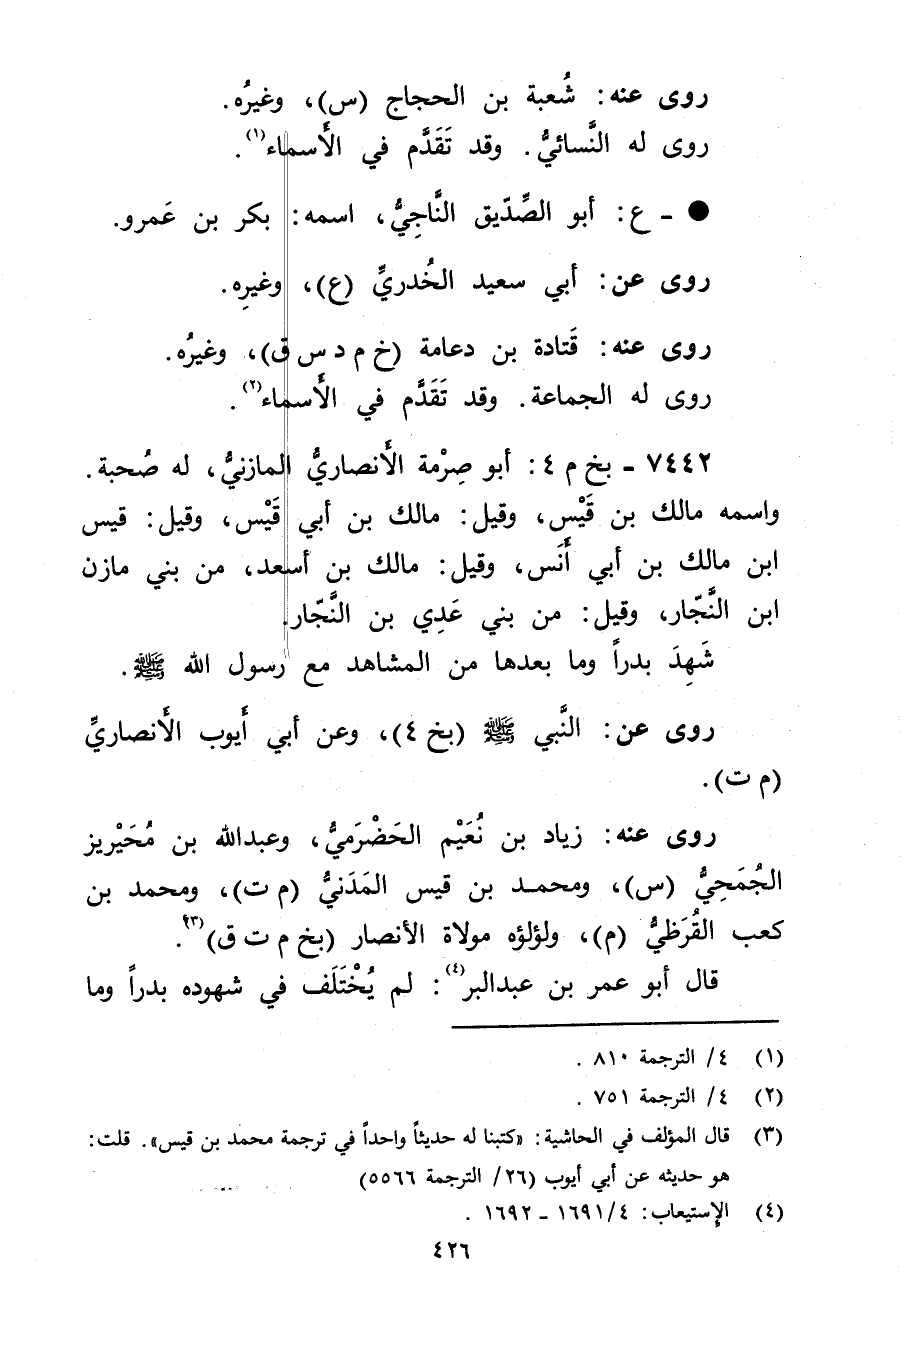 روى عنه: شُعبة بن الحجاج (س)، وغيرُه.
روى له النَّسائيُّ. وقد تَقَدَّم في الأَسماء(١).
● - ع: أبو الصِّدّيق النَّاجِيُّ، اسمه: بكر بن عَمرو.
روى عن: أبي سعيد الخُدريِّ (ع)، وغيرِه.
روى عنه: قَتادة بن دعامة (خ م د س ق)، وغيرُه.
روى له الجماعة. وقد تَقَدَّم في الأَسماء(٢).
٧٤٤٢ - بخ م ٤: أبو صِرْمة الأَنصاريُّ المازنيُّ، له صُحبة.
واسمه مالك بن قَيْس، وقيل: مالك بن أبي قَيْس، وقيل: قيس
ابن مالك بن أبي أَنَس، وقيل: مالك بن أسعد، من بني مازن
ابن النَّجّار، وقيل: من بني عَدِي بن النَّجّار.
شَهِدَ بدراً وما بعدها من المشاهد مع رسول الله ﷺ.
روى عن: النَّبي ﷺ (بخ ٤)، وعن أبي أَيوب الأَنصاريِّ
(م ت).
روى عنه: زياد بن نُعَيْم الحَضْرَميُّ، وعبدالله بن مُحَيْريز
الجُمَحِيُّ (س)، ومحمد بن قيس المَدَنيُّ (م ت)، ومحمد بن
كعب القُرَظيُّ (م)، ولؤلؤه مولاة الأنصار (بخ م ت ق)(٣).
قال أبو عمر بن عبدالبر(٤): لم يُخْتَلَف في شهوده بدراً وما
(١) ٤/ الترجمة ٨١٠.
(٢) ٤/ الترجمة ٧٥١.
(٣) قال المؤلف في الحاشية: «كتبنا له حديثاً واحداً في ترجمة محمد بن قيس». قلت:
هو حديثه عن أبي أيوب (٢٦/ الترجمة ٥٥٦٦)
(٤) الإستيعاب: ٤/ ١٦٩١ - ١٦٩٢.
٤٢٦